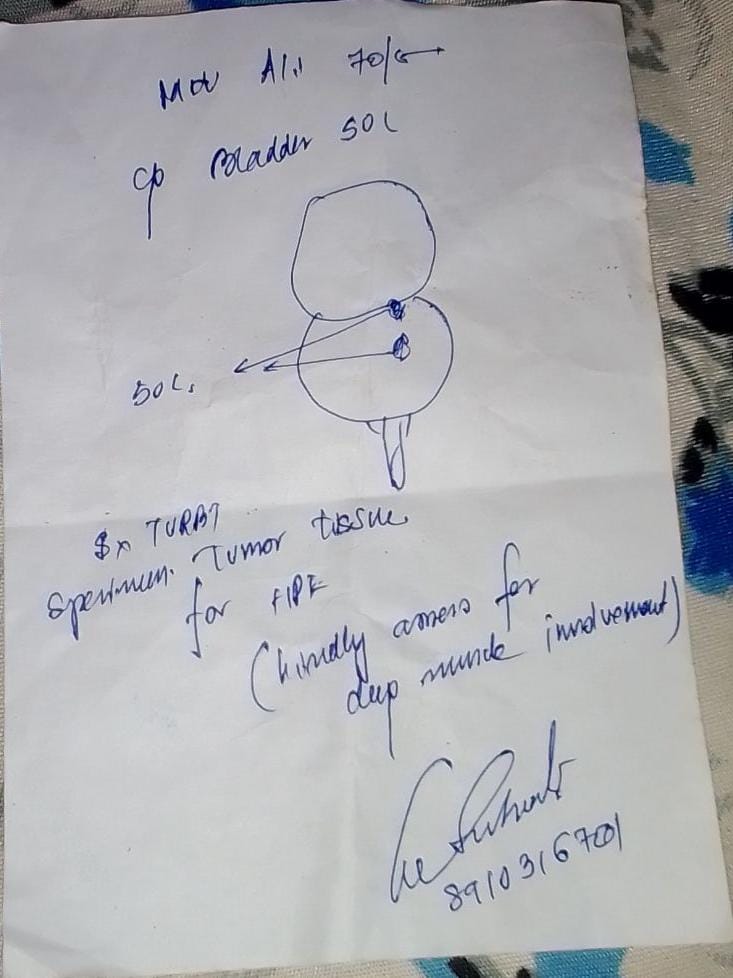 Md Ali 70/
c/o Bladder SOL
SOL.
Sx TURBT
Specimen. Tumor tissue
for HPE
(kindly assess for
deep muscle involvement)